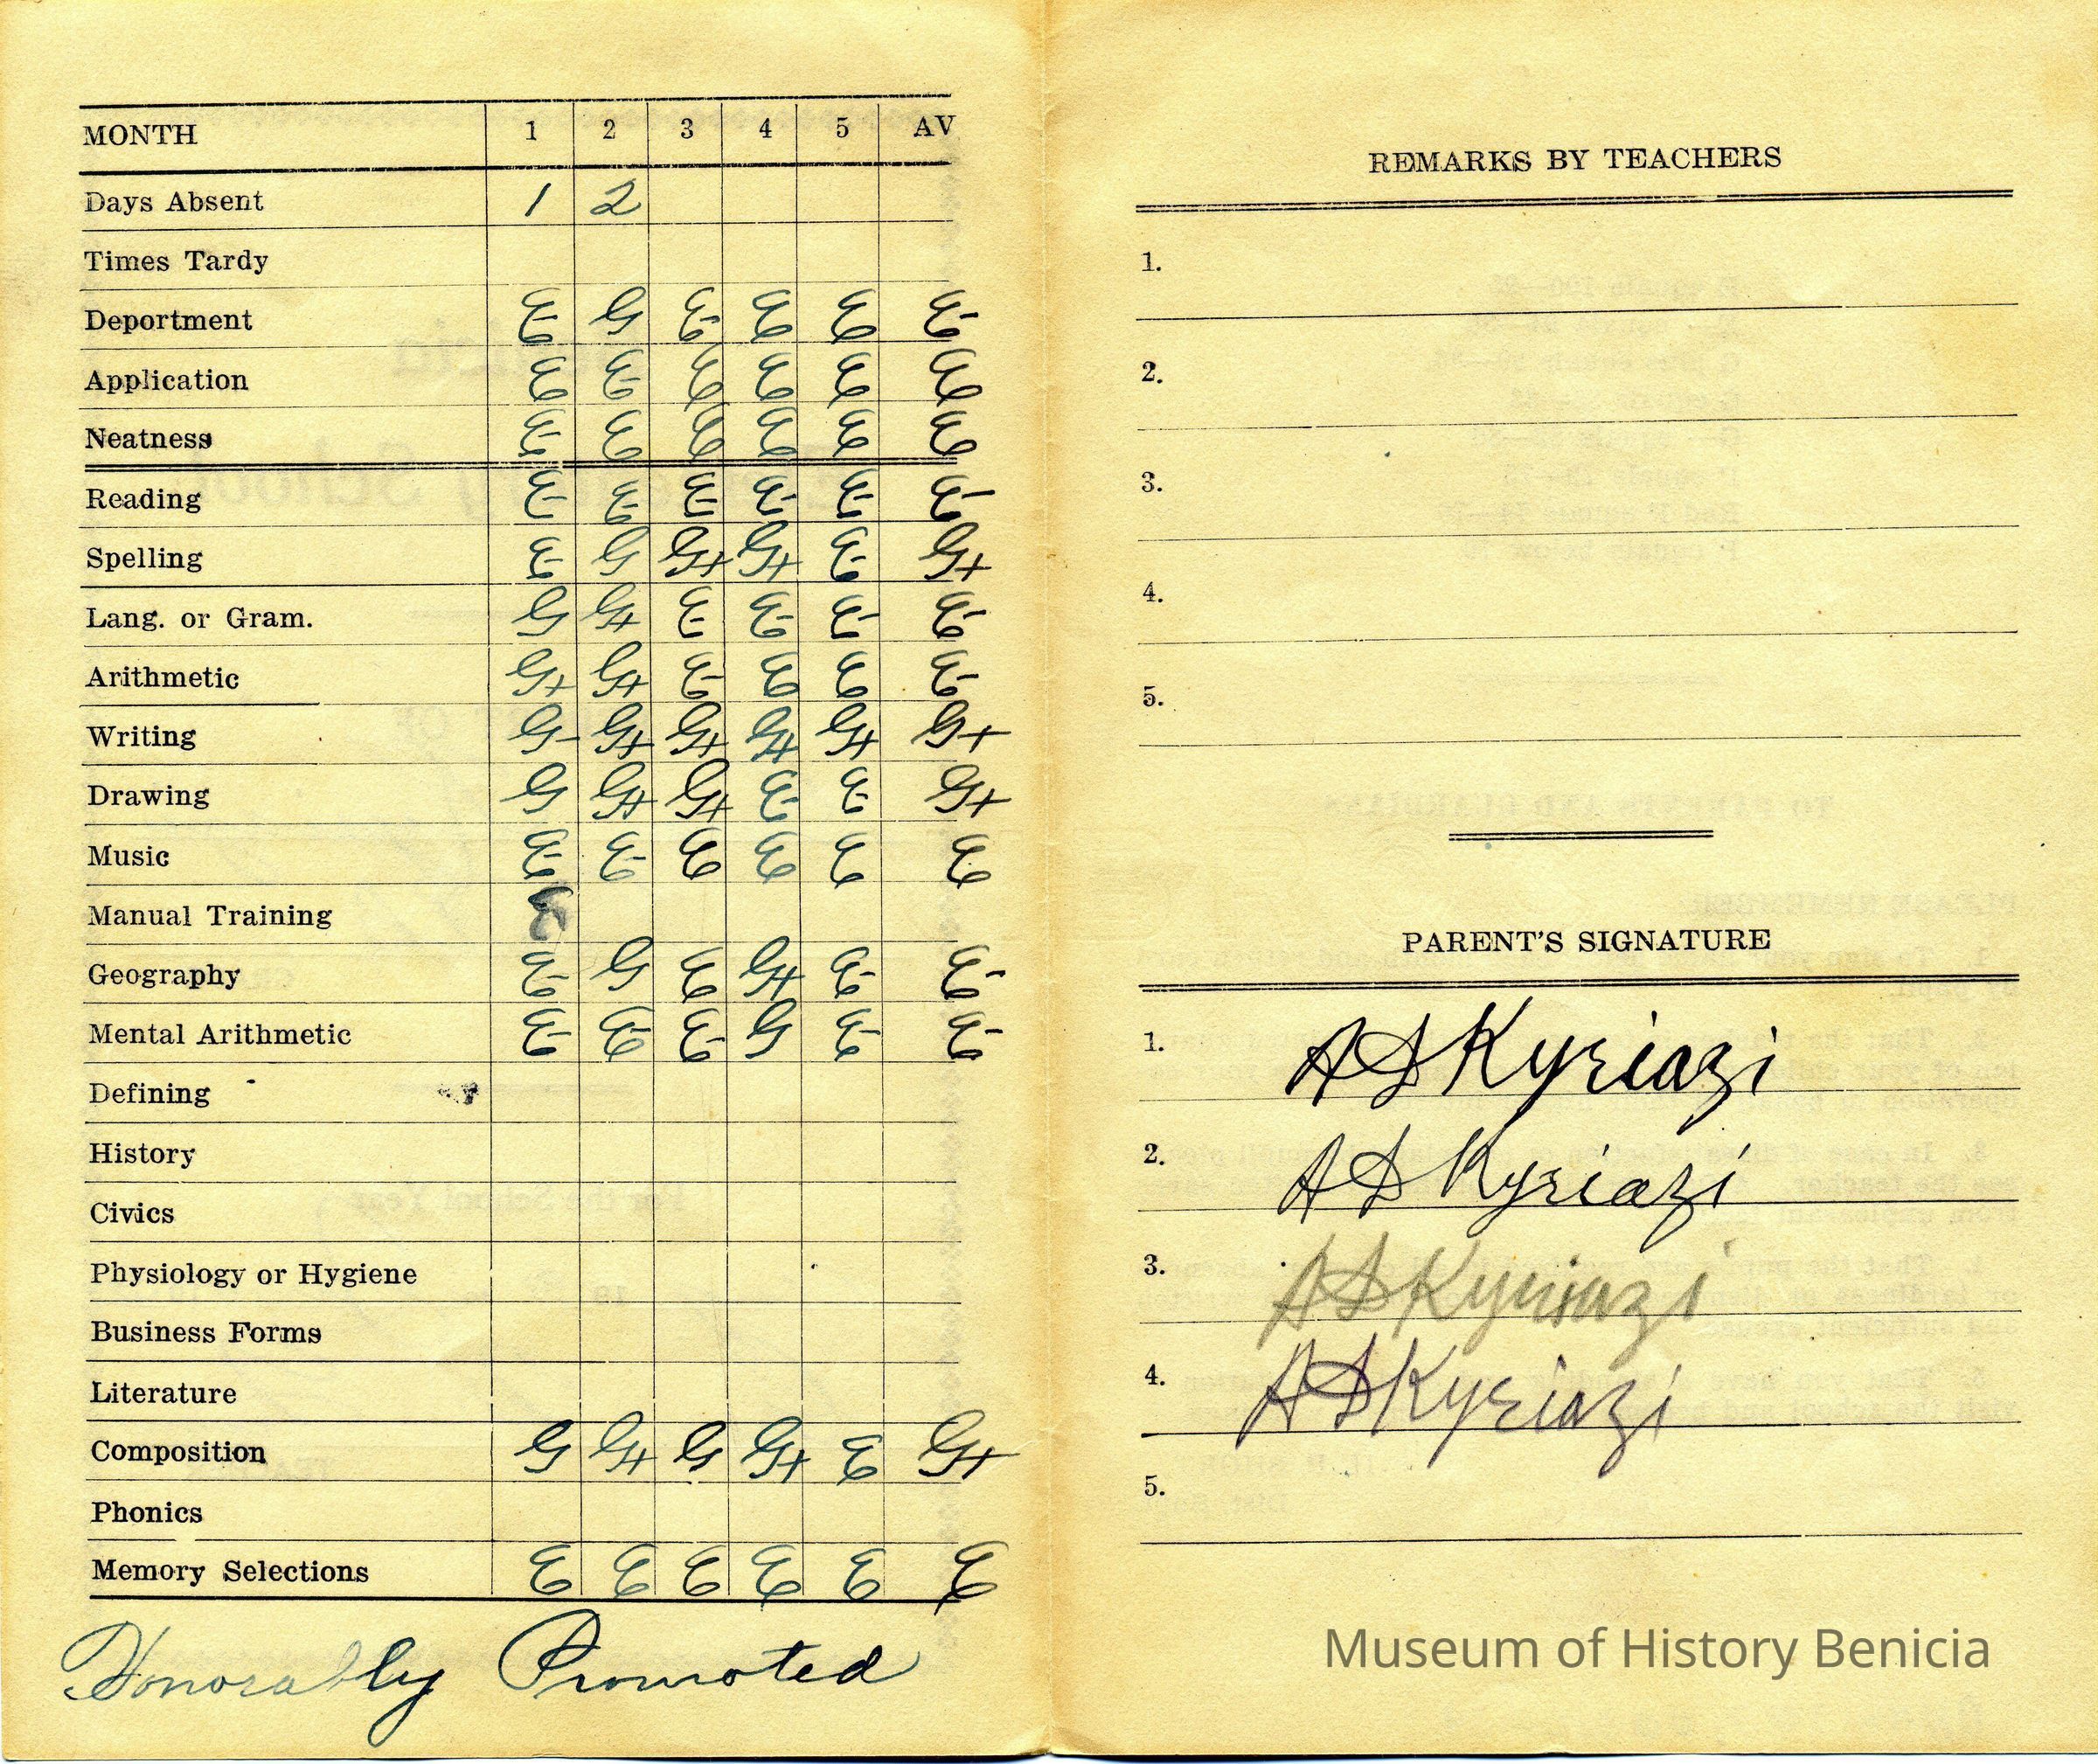 MONTH 1 2 3 4 5 AV
Days Absent 1 2
Times Tardy
Deportment E- G E- E E E-
Application E E- E E E E
Neatness E- E E E E E
Reading E- E- E- E- E- E-
Spelling E- G G+ G+ E- G+
Lang. or Gram. G G+ E- E- E- E-
Arithmetic G+ G+ E- E E E-
Writing G- G+ G+ G+ G+ G+
Drawing G G+ G+ E- E- G+
Music E- E- E E E E
Manual Training
Geography E- G E G+ E- E-
Mental Arithmetic E- E- E- G E- E-
Defining
History
Civics
Physiology or Hygiene
Business Forms
Literature
Composition G G+ G G+ E G+
Phonics
Memory Selections E E E E E E
Honorably Promoted
REMARKS BY TEACHERS
1.
2.
3.
4.
5.
PARENT'S SIGNATURE
1. A S Kyriazi
2. A S Kyriazi
3. A S Kyriazi
4. A S Kyriazi
5.
Museum of History Benicia